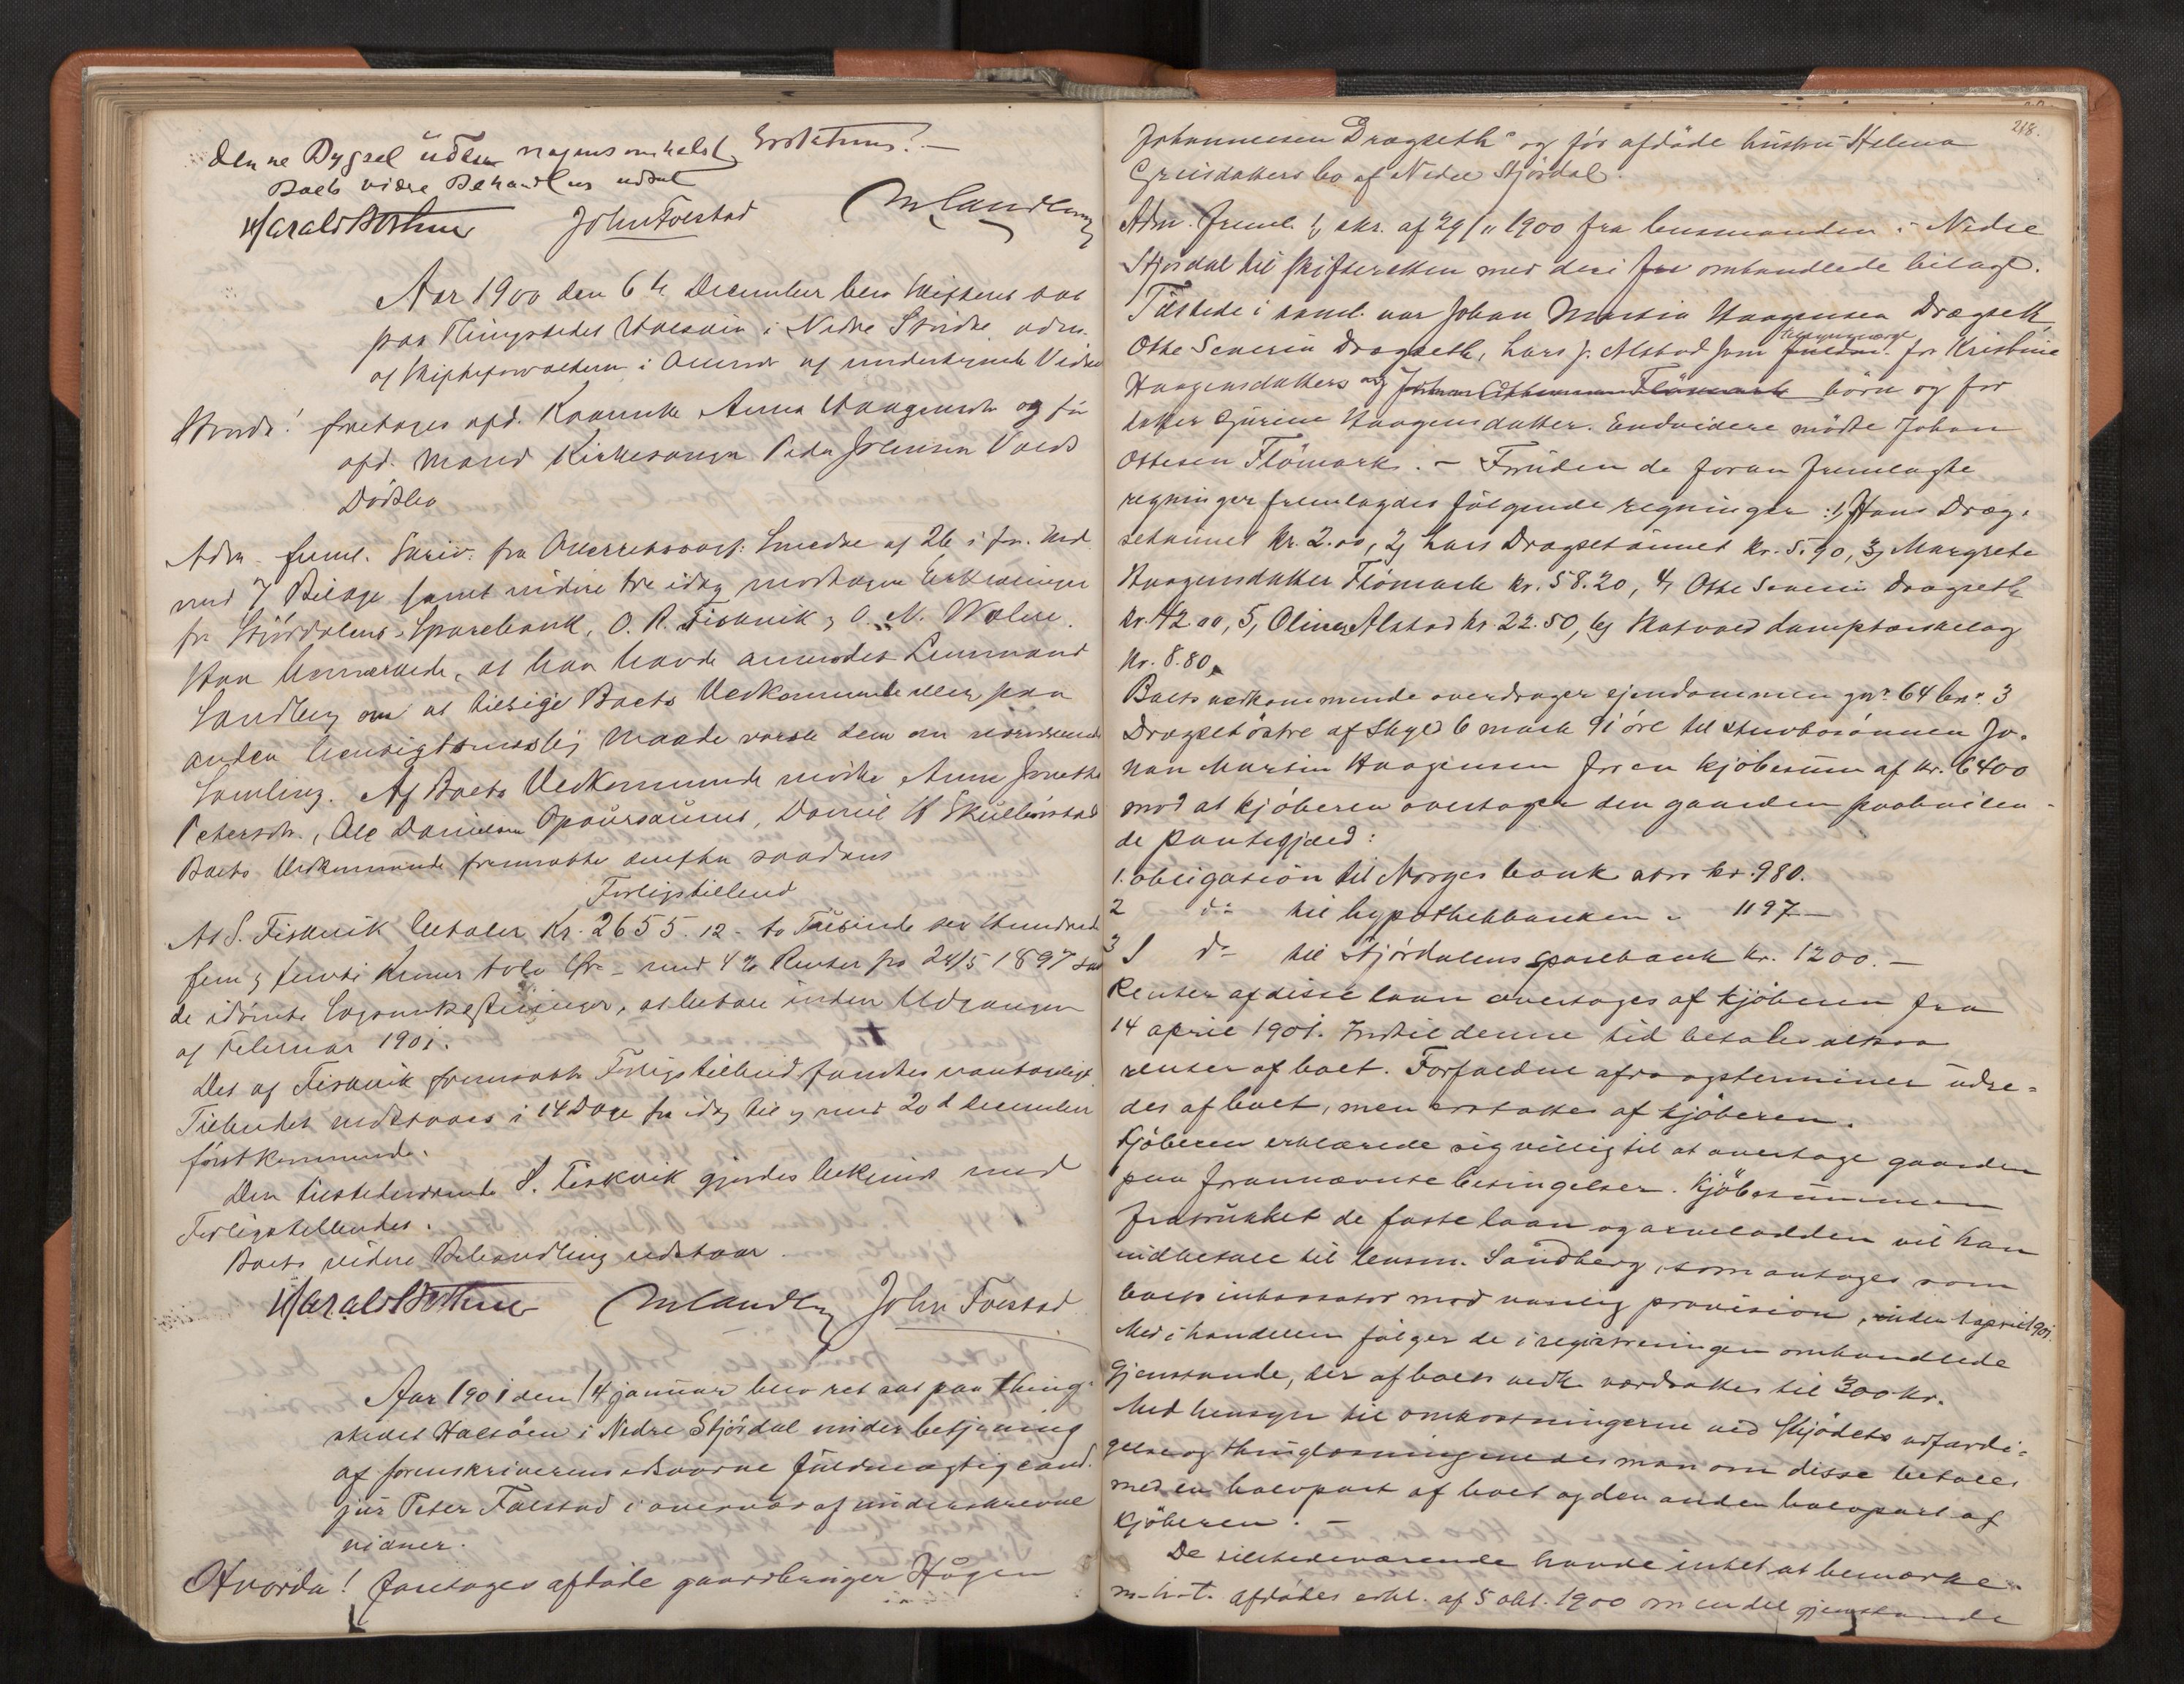 denne Dygsel uden nogensomhelst Erstatning. —
Boets vidre Behandling udsat
Harald Bothner John Folstad M Sandberg
Aar 1900 den 6te December blev Skifteret sat
paa Thingstedet Halsøin i Nedre Størdalen adm.
af Skifteforvalteren i Overvær af undertegnede Vidner
Hvorda! foretages afd. Kaarenke Anna Haagensdr og før
afd. Mand Kirkesanger Peder Jensen Volds
Dødsbo
Adm. freml. Skriv. fra Overretssagf. Smedbe af 26 i f.m. med
med 7 Bilage samt vidre tre idag modtagne Erklæringer
fra Stjørdalens Sparebank, O. R. Fiskvik og O. N. Wolen.
Han bemærkede, at han havde anmodet Lensmand
Sandberg om at tilsige Boets Vedkommende eller paa
anden hensigtsmæssig Maade varsle dem om nærværende
Samling. Af Boets Vedkommende mødte Anne Jonetta
Petersdr., Ole Danielsen Opaursaunet, Daniel H Skulbørstad
Boets Vedkommende fremsatte derefter saadant
Forligstilbud
At S. Fiskvik betaler Kr. 2655.12 - to Tusinde sex Hundrede
fem og femti Kroner tolv Øre - med 4% Renter fra 24/5 1897 samt
de idømte Sagsomkostninger, at betale inden Udgangen
af Februar 1901.
Det af Fiskvik fremsatte Forligstilbud fandtes uantageligt.
Tilbudet vedstaaes i 14 Dage fra idag til og med 20d December
førstkommende.
Den tilstedeværende S. Fiskvik gjordes bekjendt med
Forligstilbudet.
Boets vidre Behandling udstaar.
Harald Bothner M Sandberg John Folstad
Aar 1901 den 14 januar blev ret sat paa thing-
stedet Halsøen i Nedre Stjørdal under betjening
af sorenskriverens edsvorne fuldmægtig cand.
jur Peter Falstad i overvær af underskrevne
vidner.
Hvorda! foretages afdøde gaardbruger Hågen
218.
Johannesen Drogseth's og før afdøde hustru Helena
Greisdatters bo af Nedre Stjørdal.
Adm. freml. 1, skr. af 29/11 1900 fra lensmanden i Nedre
Stjørdal til skifteretten med deri for omhandlede bilage.
Tilstede i saml. var Johan Martin Haagensen Drogseth,
Otte Severin Drogseth, Lars J. Alstad som fuldm. for Kristine
Haagensdatters og Johan Ottesen Flømark børn og for
datter Gurine Haagensdatter. Endvidere mødte Johan
Ottesen Flømark. — Foruden de foran fremlagte
regninger fremlagdes følgende regninger: 1, Hans Drog-
setaunet kr. 2.00, 2, Lars Drogsetaunet kr. 5.90, 3, Margrete
Haagensdatter Flømark kr. 58.20, 4, Otte Severin Drogseth
kr. 42.00, 5, Oline Alstad kr. 22.50, 6, Skatvold damptærskelag
kr. 8.80.
Boets vedkommende overdrager ejendommen gnr. 64 bnr. 3
Drogset östre af Skyld 6 mark 91 öre til stervbosønnen Jo-
han Martin Haagensen for en kjøbesum af kr. 6400
mod at kjøberen overtager den gaarden paahvilen-
de pantegjæld:
1. obligation til Norges bank stor kr. 980.
2 do til hypothekbanken " 1197 —
3 do til Stjørdalens sparebank kr. 1200. —
Renter af disse laan overtages af kjøberen fra
14 april 1901. Indtil denne tid betales altsaa
renter af boet. Forfaldne afdragsterminer udre-
des af boet, men erstattes af kjøberen.
Kjøberen erklærede sig villig til at overtage gaarden
paa forannævnte betingelser. Kjøbesummen
fratrukket de faste laan og arvelodden vil han
indbetale til lensm. Sandberg, som antages som
boets inkassator mod vanlig provision, inden 1 april 1901.
Med i handelen følger de i registreringen omhandlede
gjenstande, der af boets vedk. værdsattes til 300 kr.
Med hensyn til omkostningerne ved Skjødets udfærdi-
gelse og thinglæsning enedes man om disse betales
med en halvpart af boet og den anden halvpart af
kjøberen. —
De tilstedeværende havde intet at bemærke
m.h.t. afdødes erkl. af 5 okt. 1900 om endel gjenstande